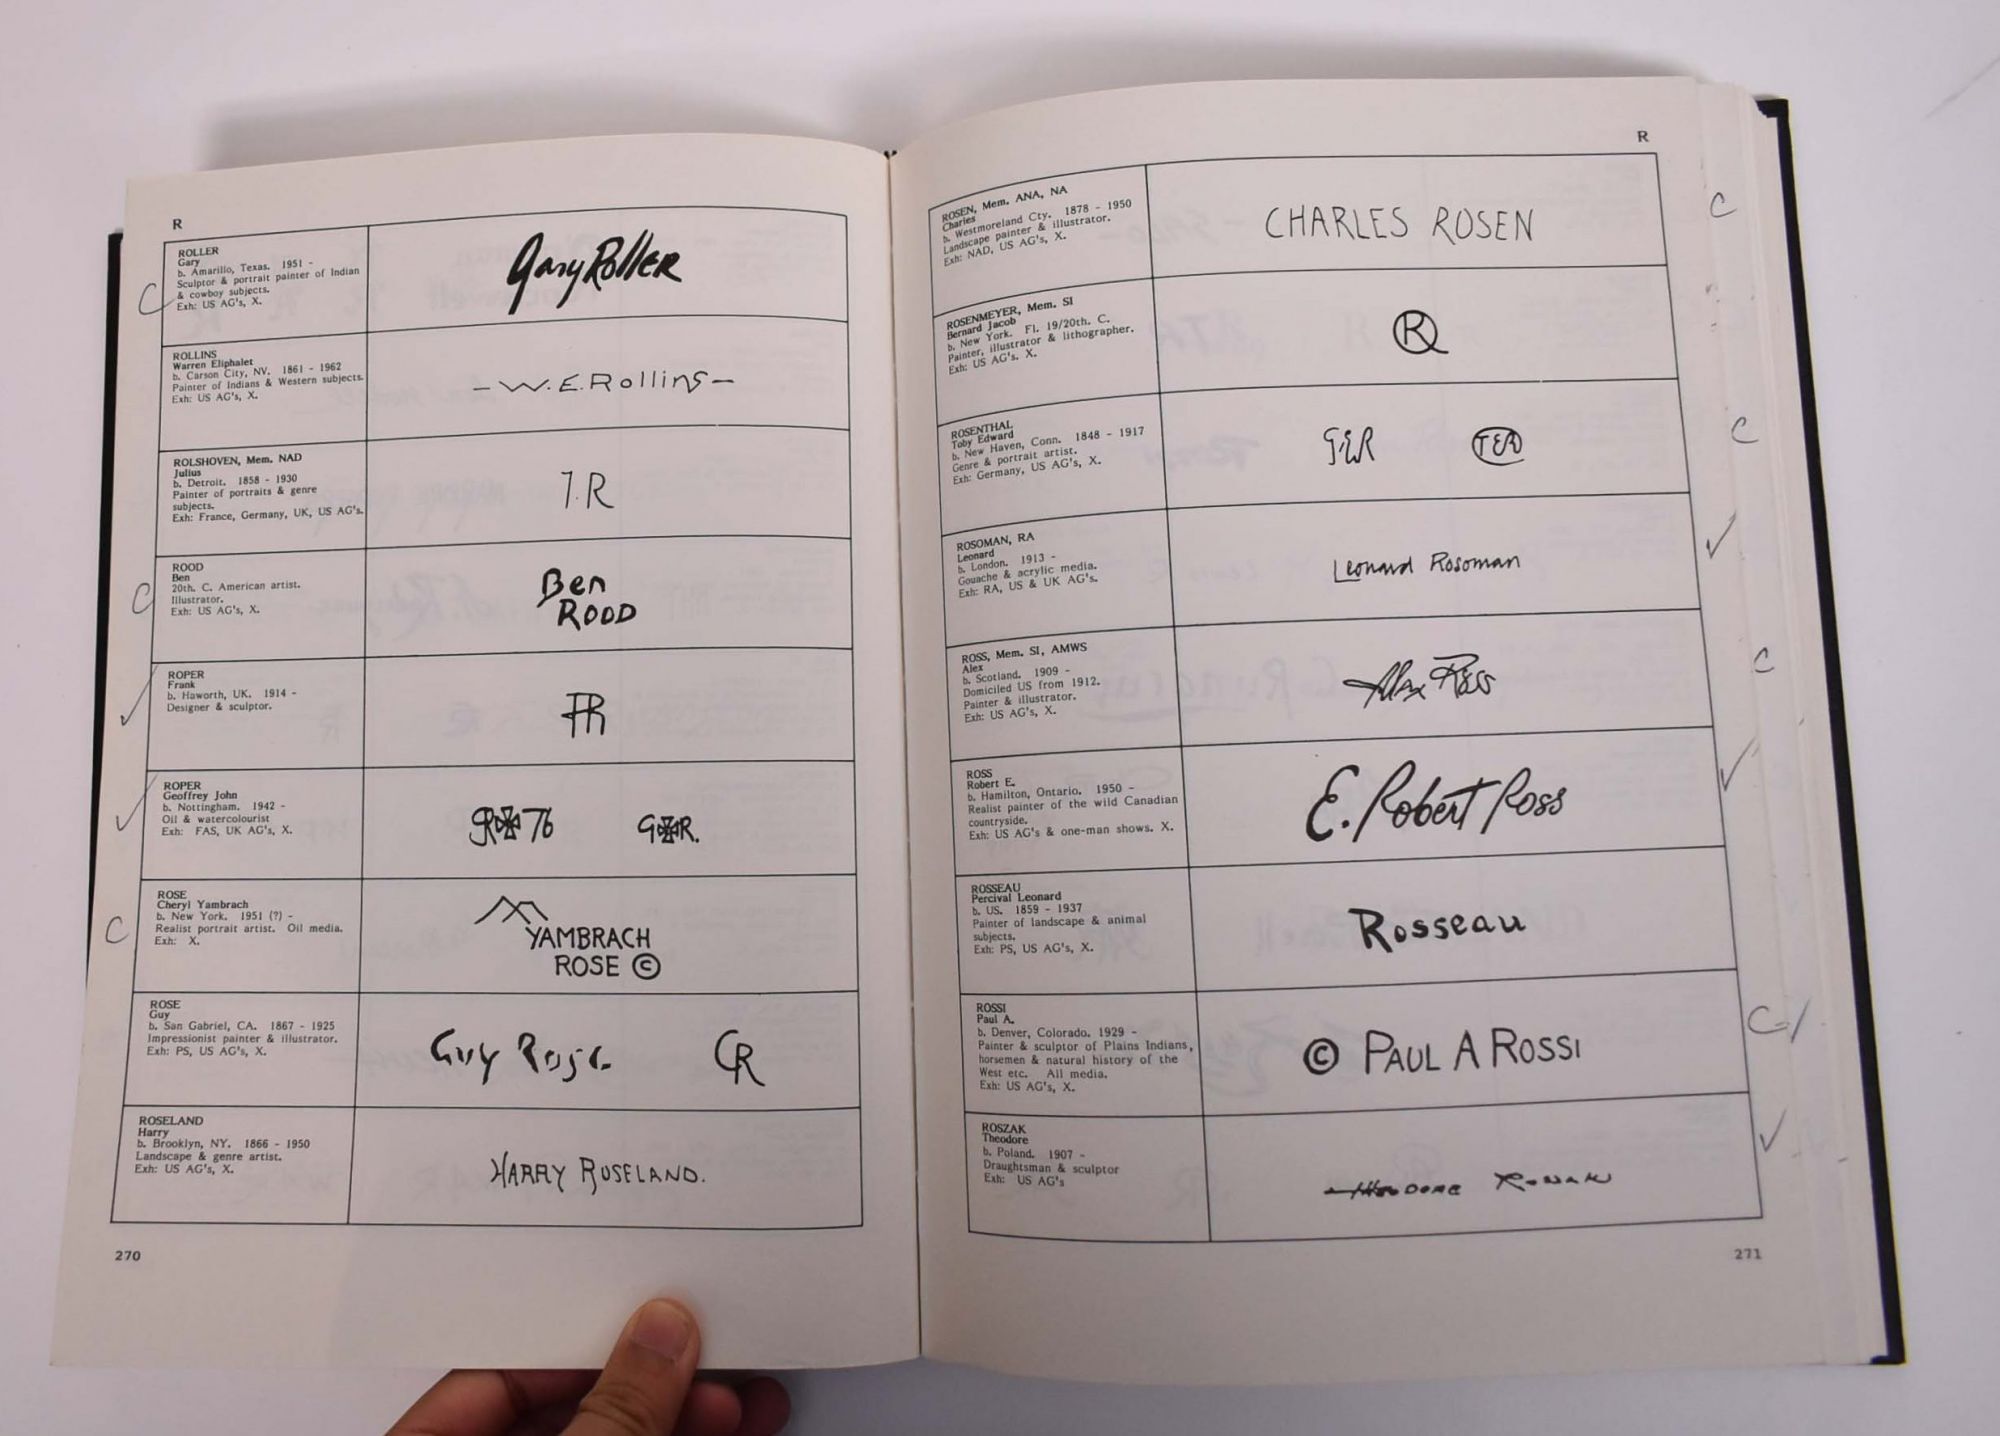 R
ROLLER
Gary
b. Amarillo, Texas. 1951 -
Sculptor & portrait painter of Indian
& cowboy subjects.
Exh: US AG's, X.
Gary Roller
C
ROLLINS
Warren Eliphalet
b. Carson City, NV. 1861 - 1962
Painter of Indians & Western subjects.
Exh: US AG's, X.
- W. E. Rollins -
ROLSHOVEN, Mem. NAD
Julius
b. Detroit. 1858 - 1930
Painter of portraits & genre
subjects.
Exh: France, Germany, UK, US AG's.
J.R
ROOD
Ben
20th. C. American artist.
Illustrator.
Exh: US AG's, X.
Ben
ROOD
C
ROPER
Frank
b. Haworth, UK. 1914 -
Designer & sculptor.
FR
✓
ROPER
Geoffrey John
b. Nottingham. 1942 -
Oil & watercolourist
Exh: FAS, UK AG's, X.
76
G R.
✓
ROSE
Cheryl Yambrach
b. New York. 1951 (?) -
Realist portrait artist. Oil media.
Exh: X.
YAMBRACH
ROSE ©
C
ROSE
Guy
b. San Gabriel, CA. 1867 - 1925
Impressionist painter & illustrator.
Exh: PS, US AG's, X.
Guy Rose. GR
ROSELAND
Harry
b. Brooklyn, NY. 1866 - 1950
Landscape & genre artist.
Exh: US AG's, X.
HARRY ROSELAND.
270
R
ROSEN, Mem. ANA, NA
Charles
b. Westmoreland Cty. 1878 - 1950
Landscape painter & illustrator.
Exh: NAD, US AG's, X.
CHARLES ROSEN
C
ROSENMEYER, Mem. SI
Bernard Jacob
b. New York. Fl. 19/20th. C.
Painter, illustrator & lithographer.
Exh: US AG's. X.
R
ROSENTHAL
Toby Edward
b. New Haven, Conn. 1848 - 1917
Genre & portrait artist.
Exh: Germany, US AG's, X.
TER
C
ROSOMAN, RA
Leonard
b. London. 1913 -
Gouache & acrylic media.
Exh: RA, US & UK AG's.
Leonard Rosoman
✓
ROSS, Mem. SI, AMWS
Alex
b. Scotland. 1909 -
Domiciled US from 1912.
Painter & illustrator.
Exh: US AG's, X.
Alex Ross
C
ROSS
Robert E.
b. Hamilton, Ontario. 1950 -
Realist painter of the wild Canadian
countryside.
Exh: US AG's & one-man shows. X.
E. Robert Ross
✓
ROSSEAU
Percival Leonard
b. US. 1859 - 1937
Painter of landscape & animal
subjects.
Exh: PS, US AG's, X.
Rosseau
ROSSI
Paul A.
b. Denver, Colorado. 1929 -
Painter & sculptor of Plains Indians,
horsemen & natural history of the
West etc. All media.
Exh: US AG's, X.
© PAUL A ROSSI
C
ROSZAK
Theodore
b. Poland. 1907 -
Draughtsman & sculptor
Exh: US AG's
THEODORE ROSZAK
✓
271